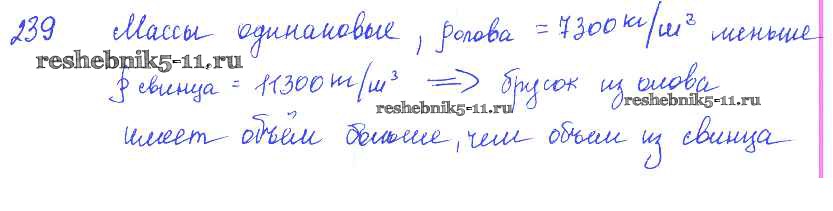 239 Массы одинаковые, ρ олова = 7300 кг/м³ меньше
reshebnik5-11.ru
ρ свинца = 11300 кг/м³ ⟹ брусок из олова
reshebnik5-11.ru reshebnik5-11.ru
имеет объём больше, чем объем из свинца